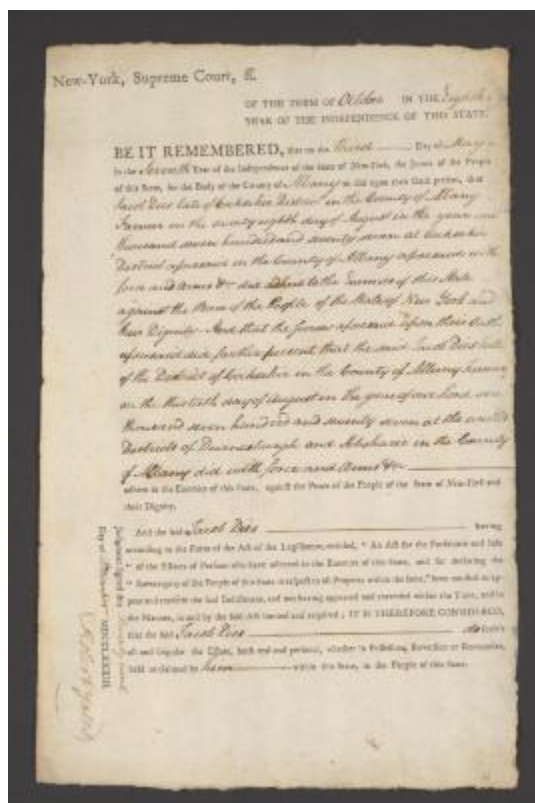 New-York, Supreme Court, ss.
OF THE TERM OF October IN THE Eighth
YEAR OF THE INDEPENDENCE OF THIS STATE.
BE IT REMEMBERED, that on the Third Day of May
in the Seventh Year of the Independence of the State of New-York, the Jurors of the People
of this State, for the Body of the County of Albany did upon their Oath present, that
Jacob Dies late of Cocksakie District in the County of Albany
Farmer on the twenty eighth day of August in the year one
thousand seven hundred and seventy seven at Cocksakie
District aforesaid in the County of Albany aforesaid with
force and arms &c did adhere to the Enemies of this State
against the Peace of the People of the State of New York and
their Dignity. And that the Jurors aforesaid upon their Oath
aforesaid did further present that the said Jacob Dies late
of the District of Cocksakie in the County of Albany Farmer
on the thirtieth day of August in the year of our Lord one
thousand seven hundred and seventy seven at the united
Districts of Duanesburgh and Schoharie in the County
of Albany did with force and Arms &c
adhere to the Enemies of this State, against the Peace of the People of the State of New-York and
their Dignity.
And the said Jacob Dies having
according to the Form of the Act of the Legislature, entitled, " An Act for the Forfeiture and Sale
" of the Estates of Persons who have adhered to the Enemies of this State, and for declaring the
" Sovereignty of the People of this State in respect to all Property within the same," been notified to ap-
pear and traverse the said Indictment, and not having appeared and traversed within the Time, and in
the Manner, in and by the said Act limited and required ; IT IS THEREFORE CONSIDERED,
that the said Jacob Dies do forfeit
all and singular the Estate, both real and personal, whether in Possession, Reversion or Remainder,
held or claimed by him within this State, to the People of this State.
Judgment signed this
Day of MDCCLXXXIII.